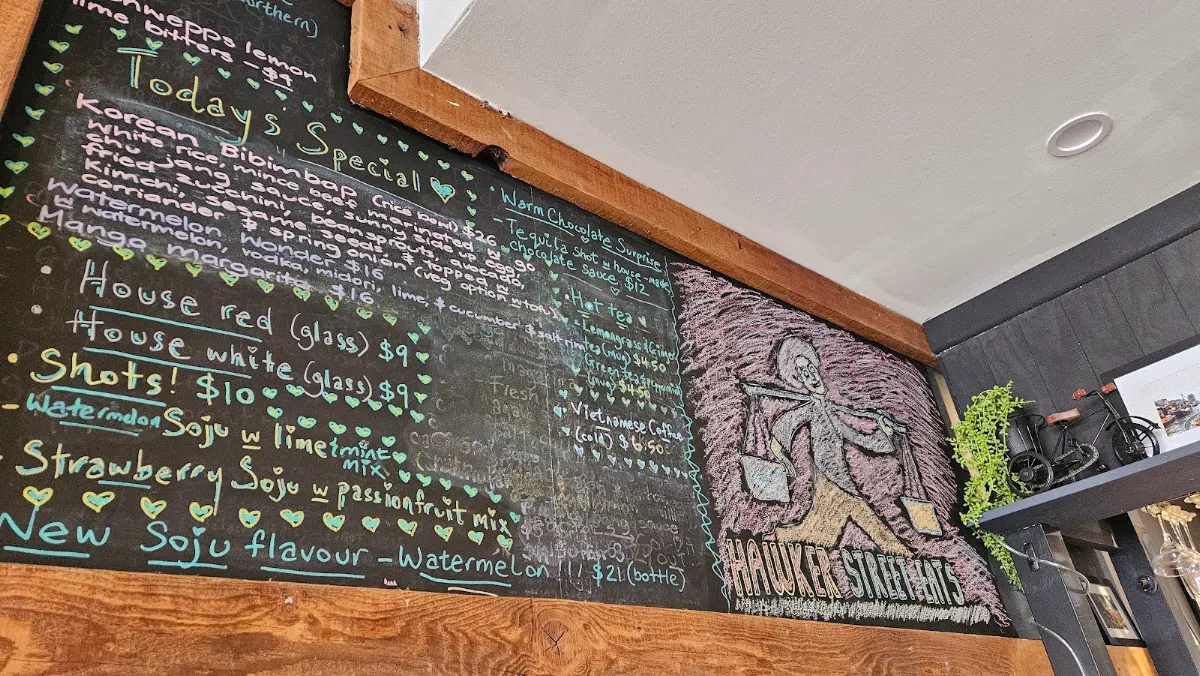 orthern)
hwepps lemon
lime bitters - $4
Today's Special
Korean Bibimbap (rice bowl) $26
white rice, mince beef marinated w go
chu jang sauce, sunny side up egg,
fried zucchini, beansprouts, avocado,
Kimchi, sesame seeds &
corriander & spring onion (veg option w tofu)
Watermelon Wonder $16
w watermelon, vodka, midori, lime, & cucumber
Mango margarita $16
• House red (glass) $9
• House white (glass) $9
• Shots! $10
- Watermelon Soju w lime & mint mix
- Strawberry Soju w passionfruit mix
New Soju flavour - Watermelon !! $21 (bottle)
• Warm Chocolate Surprise
- Tequila shot w house-made
chocolate sauce $12
• Hot tea
- Lemongrass & Ginger
tea (mug) $4.50
(mug) $4.50
• Vietnamese Coffee
(cold) $6.50
HAWKER STREET EATS